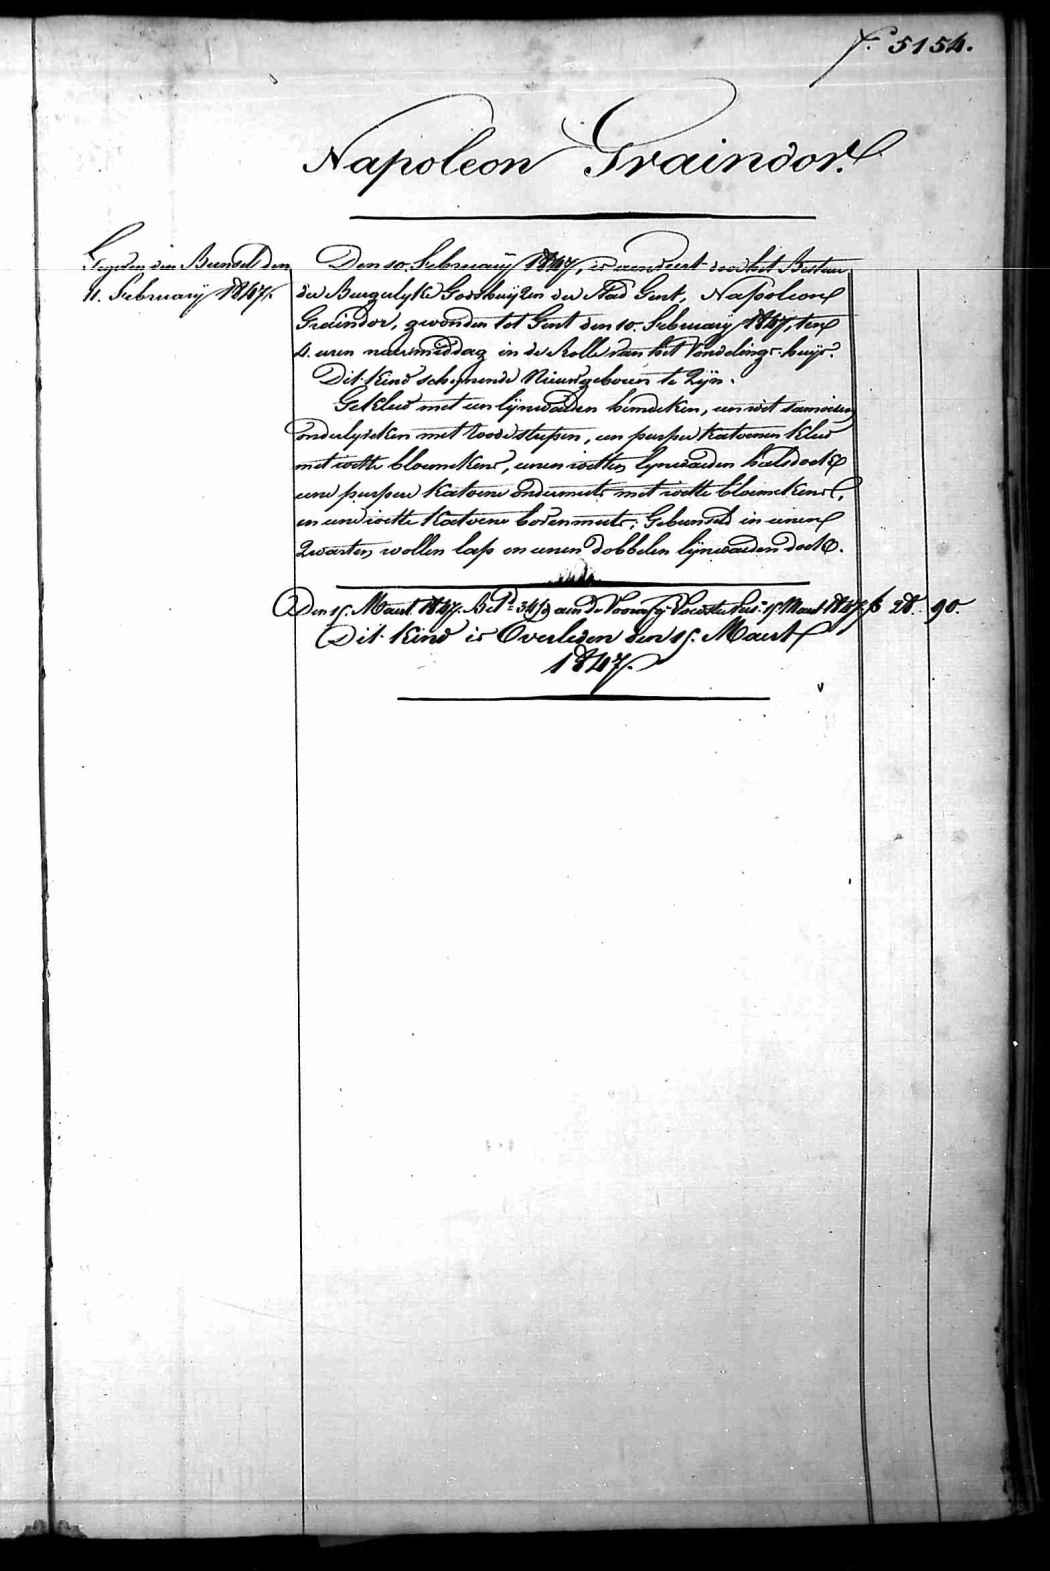 f.° 5154.
Napoleon Graindor.
Gegeven den Bunsels den
11. February 1847.
Den 10. February 1847, is aenveert door het Bestuur
der Burgerlyke Godshuyzen der Stad Gent, Napoleon
Graindor, gevonden tot Gent den 10. February 1847, ten
4. uren naermiddag in de Rolle van het Vondelings-huys.
Dit kind schynende Nieuwgeboren te Zyn.
Gekleed met een lynwaeden hemdeken, een wit
onderlyveken met roode strepen, een purper katoenen kleed
met witte bloemekens, eenen witten lynwaeden halsdoek
eene purpere katoene ondermuts met witte bloemekens,
en eene witte katoene bovenmuts; Gebunseld in eenen
Zwarten wollen lap en eenen dobbelen lynwaeden doek.
Den 15. Maert 1847. aen de 15 Maert 1847. f 28. 90.
Dit kind is Overleden den 15. Maert
1847.